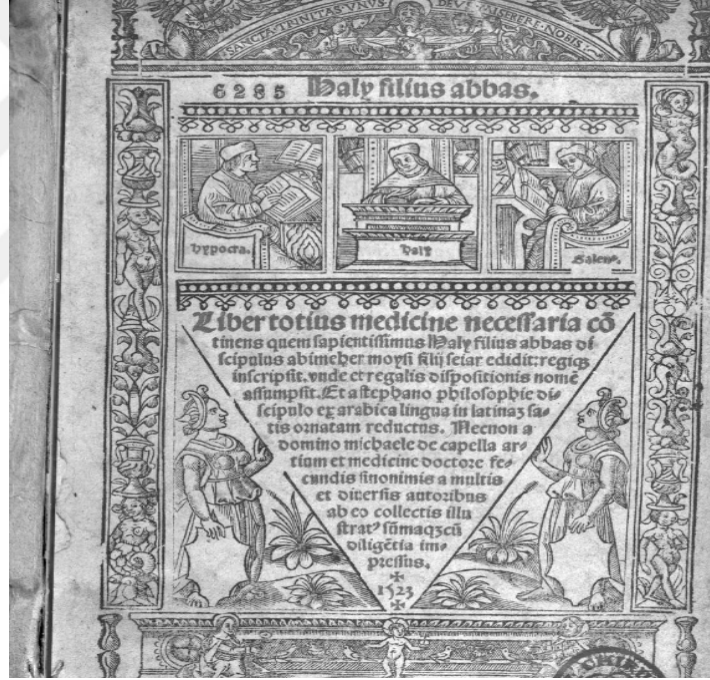 SANCTA·TRINITAS·VNVS·DEVS·MISERERE·NOBIS:
6285 Haly filius abbas.
hypocra. Haly Galenꝰ.
Liber totius medicine necessaria cō
tinens quem sapientissimus Haly filius abbas di
scipulus abimeher moysi filij seiar edidit: regiqꝫ
inscripsit. vnde et regalis dispositionis nomē
assumpsit. Et a stephano philosophie di⸗
scipulo ex arabica lingua in latinaꝫ sa⸗
tis ornatam reductus. Necnon a
domino michaele de capella ar⸗
tium et medicine doctore fe⸗
cundis sinonimis a multis
et diuersis autoribus
ab eo collectis illu
stratꝰ sūmaqꝫ cū
diligētia im⸗
pressus.
1523